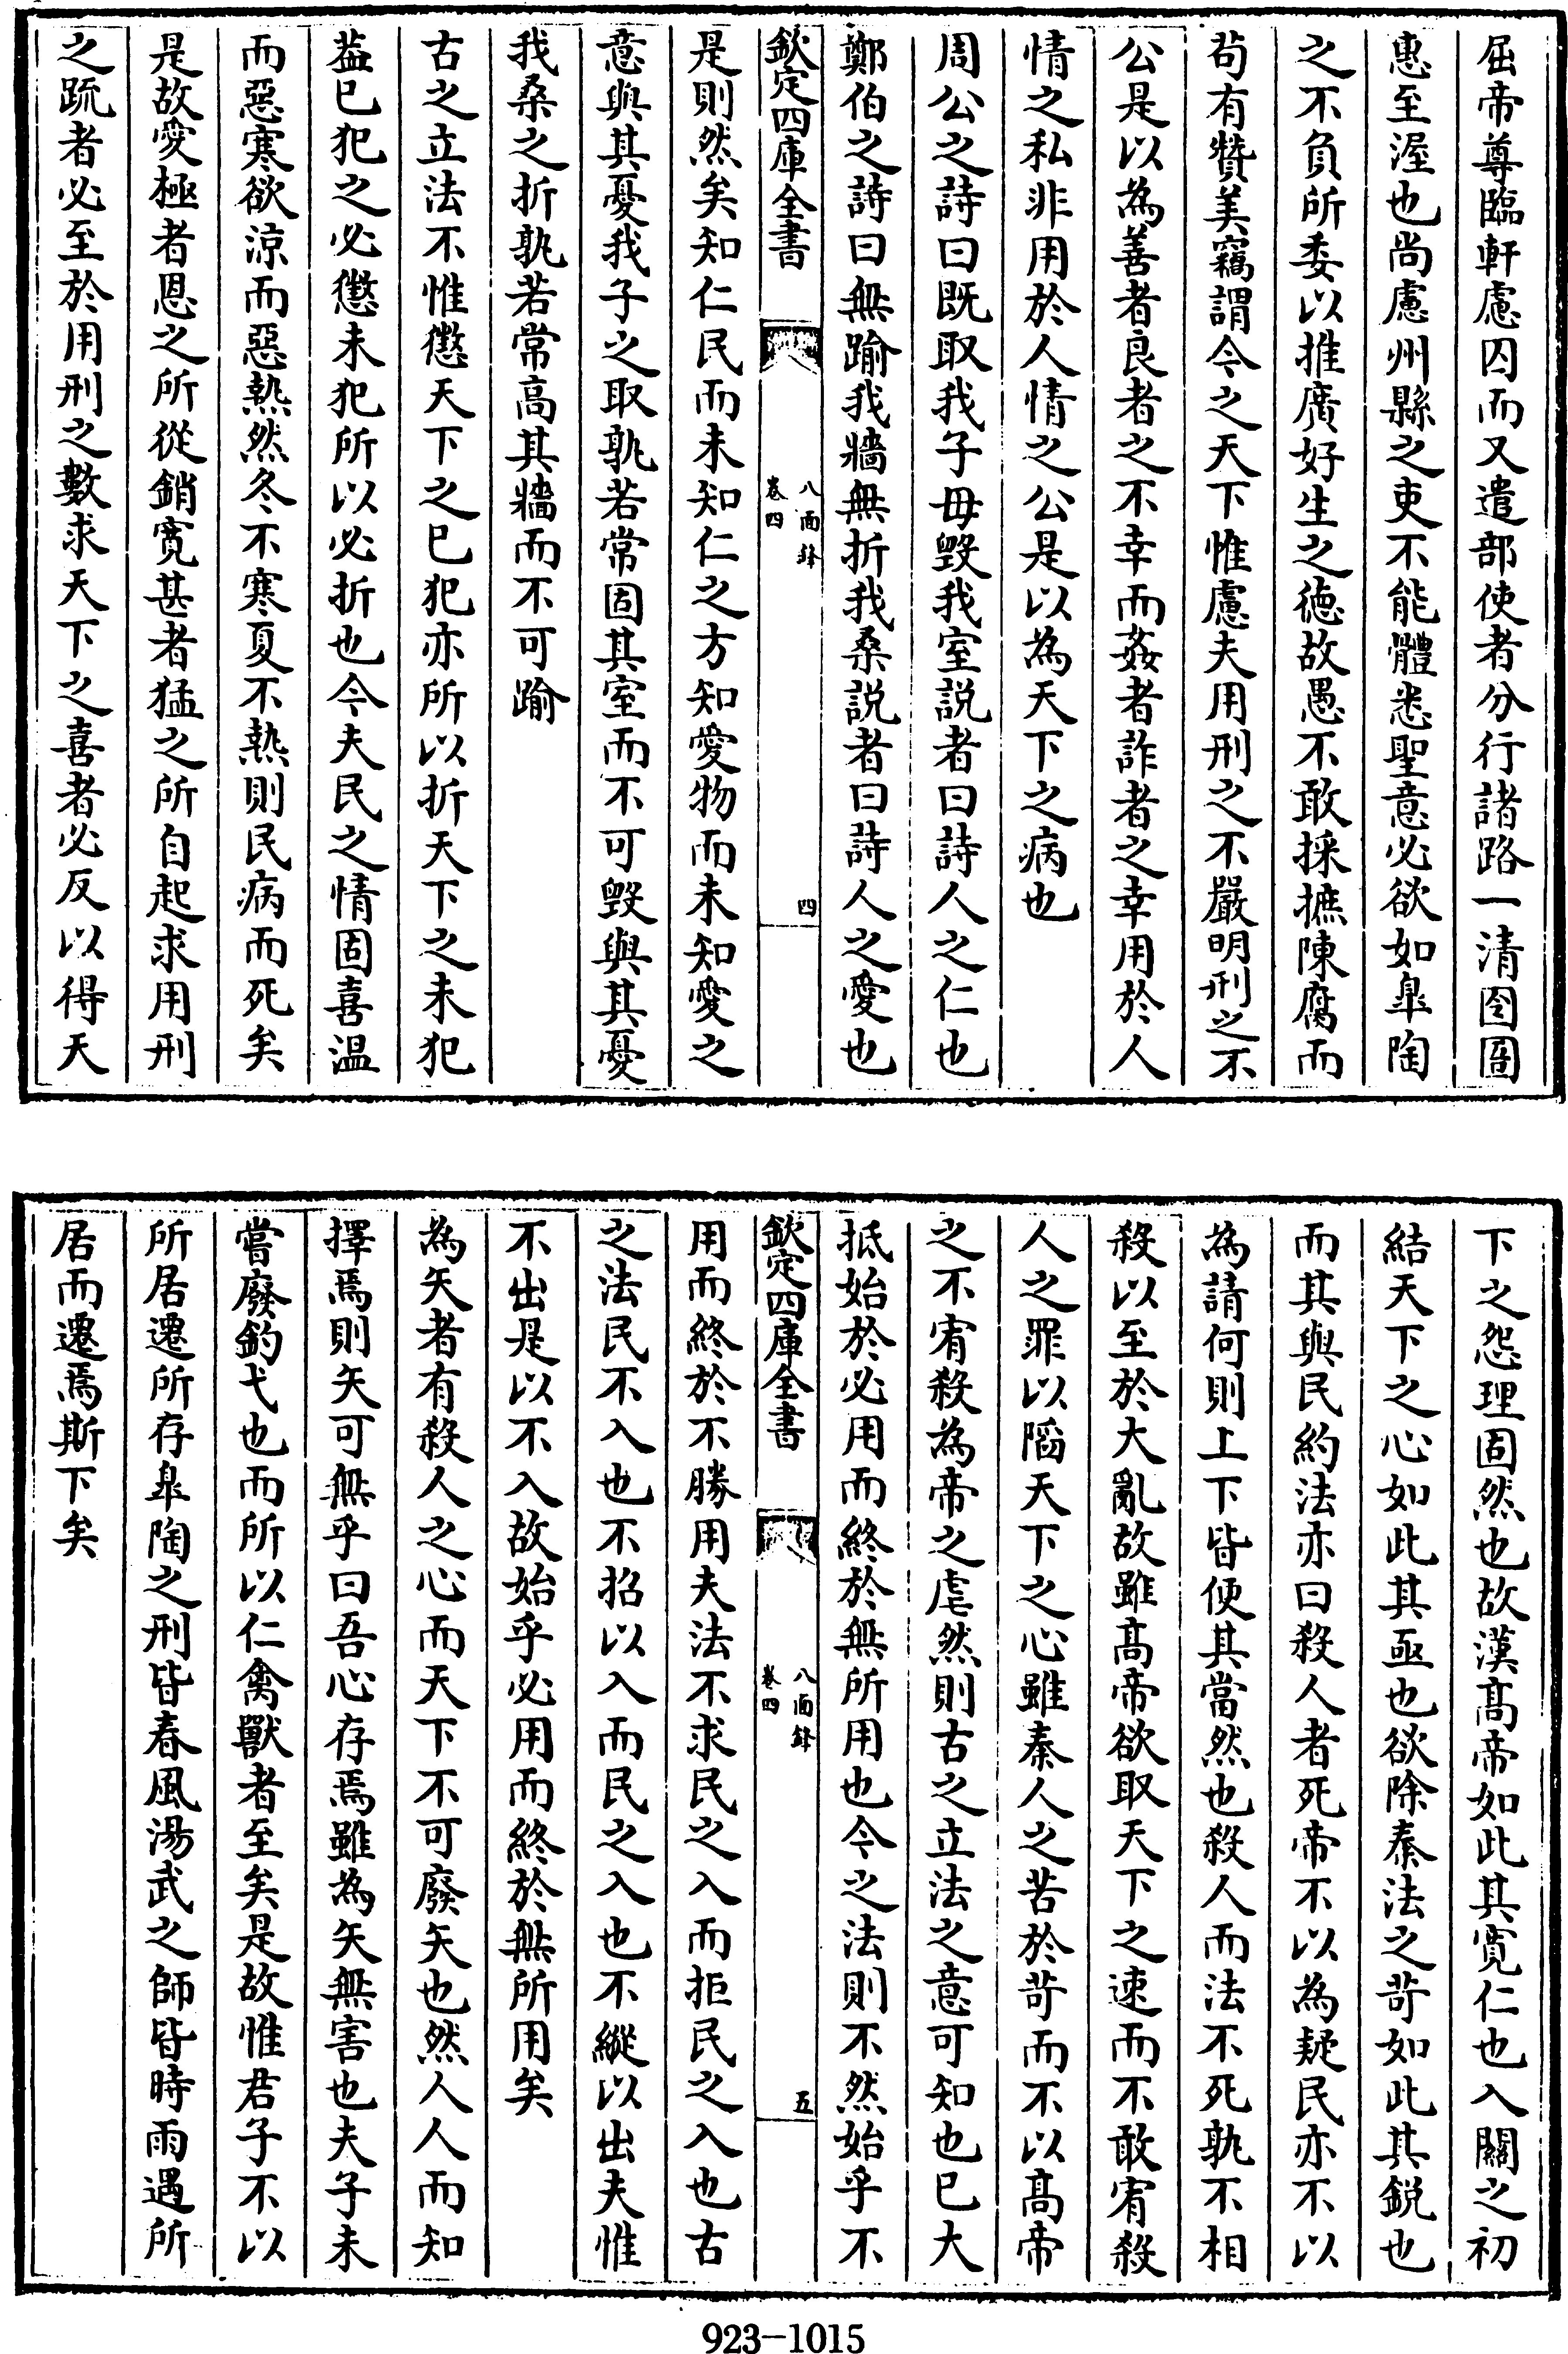 屈帝尊臨軒慮囚而又遣部使者分行諸路一清囹圄
惠至渥也尚慮州縣之吏不能體悉聖意必欲如臯陶
之不負所委以推廣好生之德故愚不敢採摭陳腐而
茍有贊美竊謂今之天下惟慮夫用刑之不嚴明刑之不
公是以為善者良者之不幸而姦者詐者之幸用於人
情之私非用於人情之公是以為天下之病也
周公之詩曰既取我子毋毁我室説者曰詩人之仁也
鄭伯之詩曰無踰我牆無折我桑説者曰詩人之愛也
欽定四庫全書
八面鋒
卷四
四
是則然矣知仁民而未知仁之方知愛物而未知愛之
意與其憂我子之取孰若常固其室而不可毁與其憂
我桑之折孰若常高其牆而不可踰
古之立法不惟懲天下之已犯亦所以折天下之未犯
葢已犯之必懲未犯所以必折也今夫民之情固喜温
而惡寒欲涼而惡熱然冬不寒夏不熱則民病而死矣
是故愛極者恩之所從銷寛甚者猛之所自起求用刑
之疏者必至於用刑之數求天下之喜者必反以得天
下之怨理固然也故漢髙帝如此其寛仁也入關之初
結天下之心如此其亟也欲除秦法之苛如此其鋭也
而其與民約法亦曰殺人者死帝不以為疑民亦不以
為請何則上下皆便其當然也殺人而法不死孰不相
殺以至於大亂故雖髙帝欲取天下之速而不敢宥殺
人之罪以䧟天下之心雖秦人之苦於苛而不以髙帝
之不宥殺為帝之虐然則古之立法之意可知也已大
抵始於必用而終於無所用也今之法則不然始乎不
欽定四庫全書
八面鋒
卷四
五
用而終於不勝用夫法不求民之入而拒民之入也古
之法民不入也不招以入而民之入也不縱以出夫惟
不出是以不入故始乎必用而終於無所用矣
為矢者有殺人之心而天下不可廢矢也然人人而知
擇焉則矢可無乎曰吾心存焉雖為矢無害也夫子未
嘗廢釣弋也而所以仁禽獸者至矣是故惟君子不以
所居遷所存臯陶之刑皆春風湯武之師皆時雨遇所
居而遷焉斯下矣
923-1015